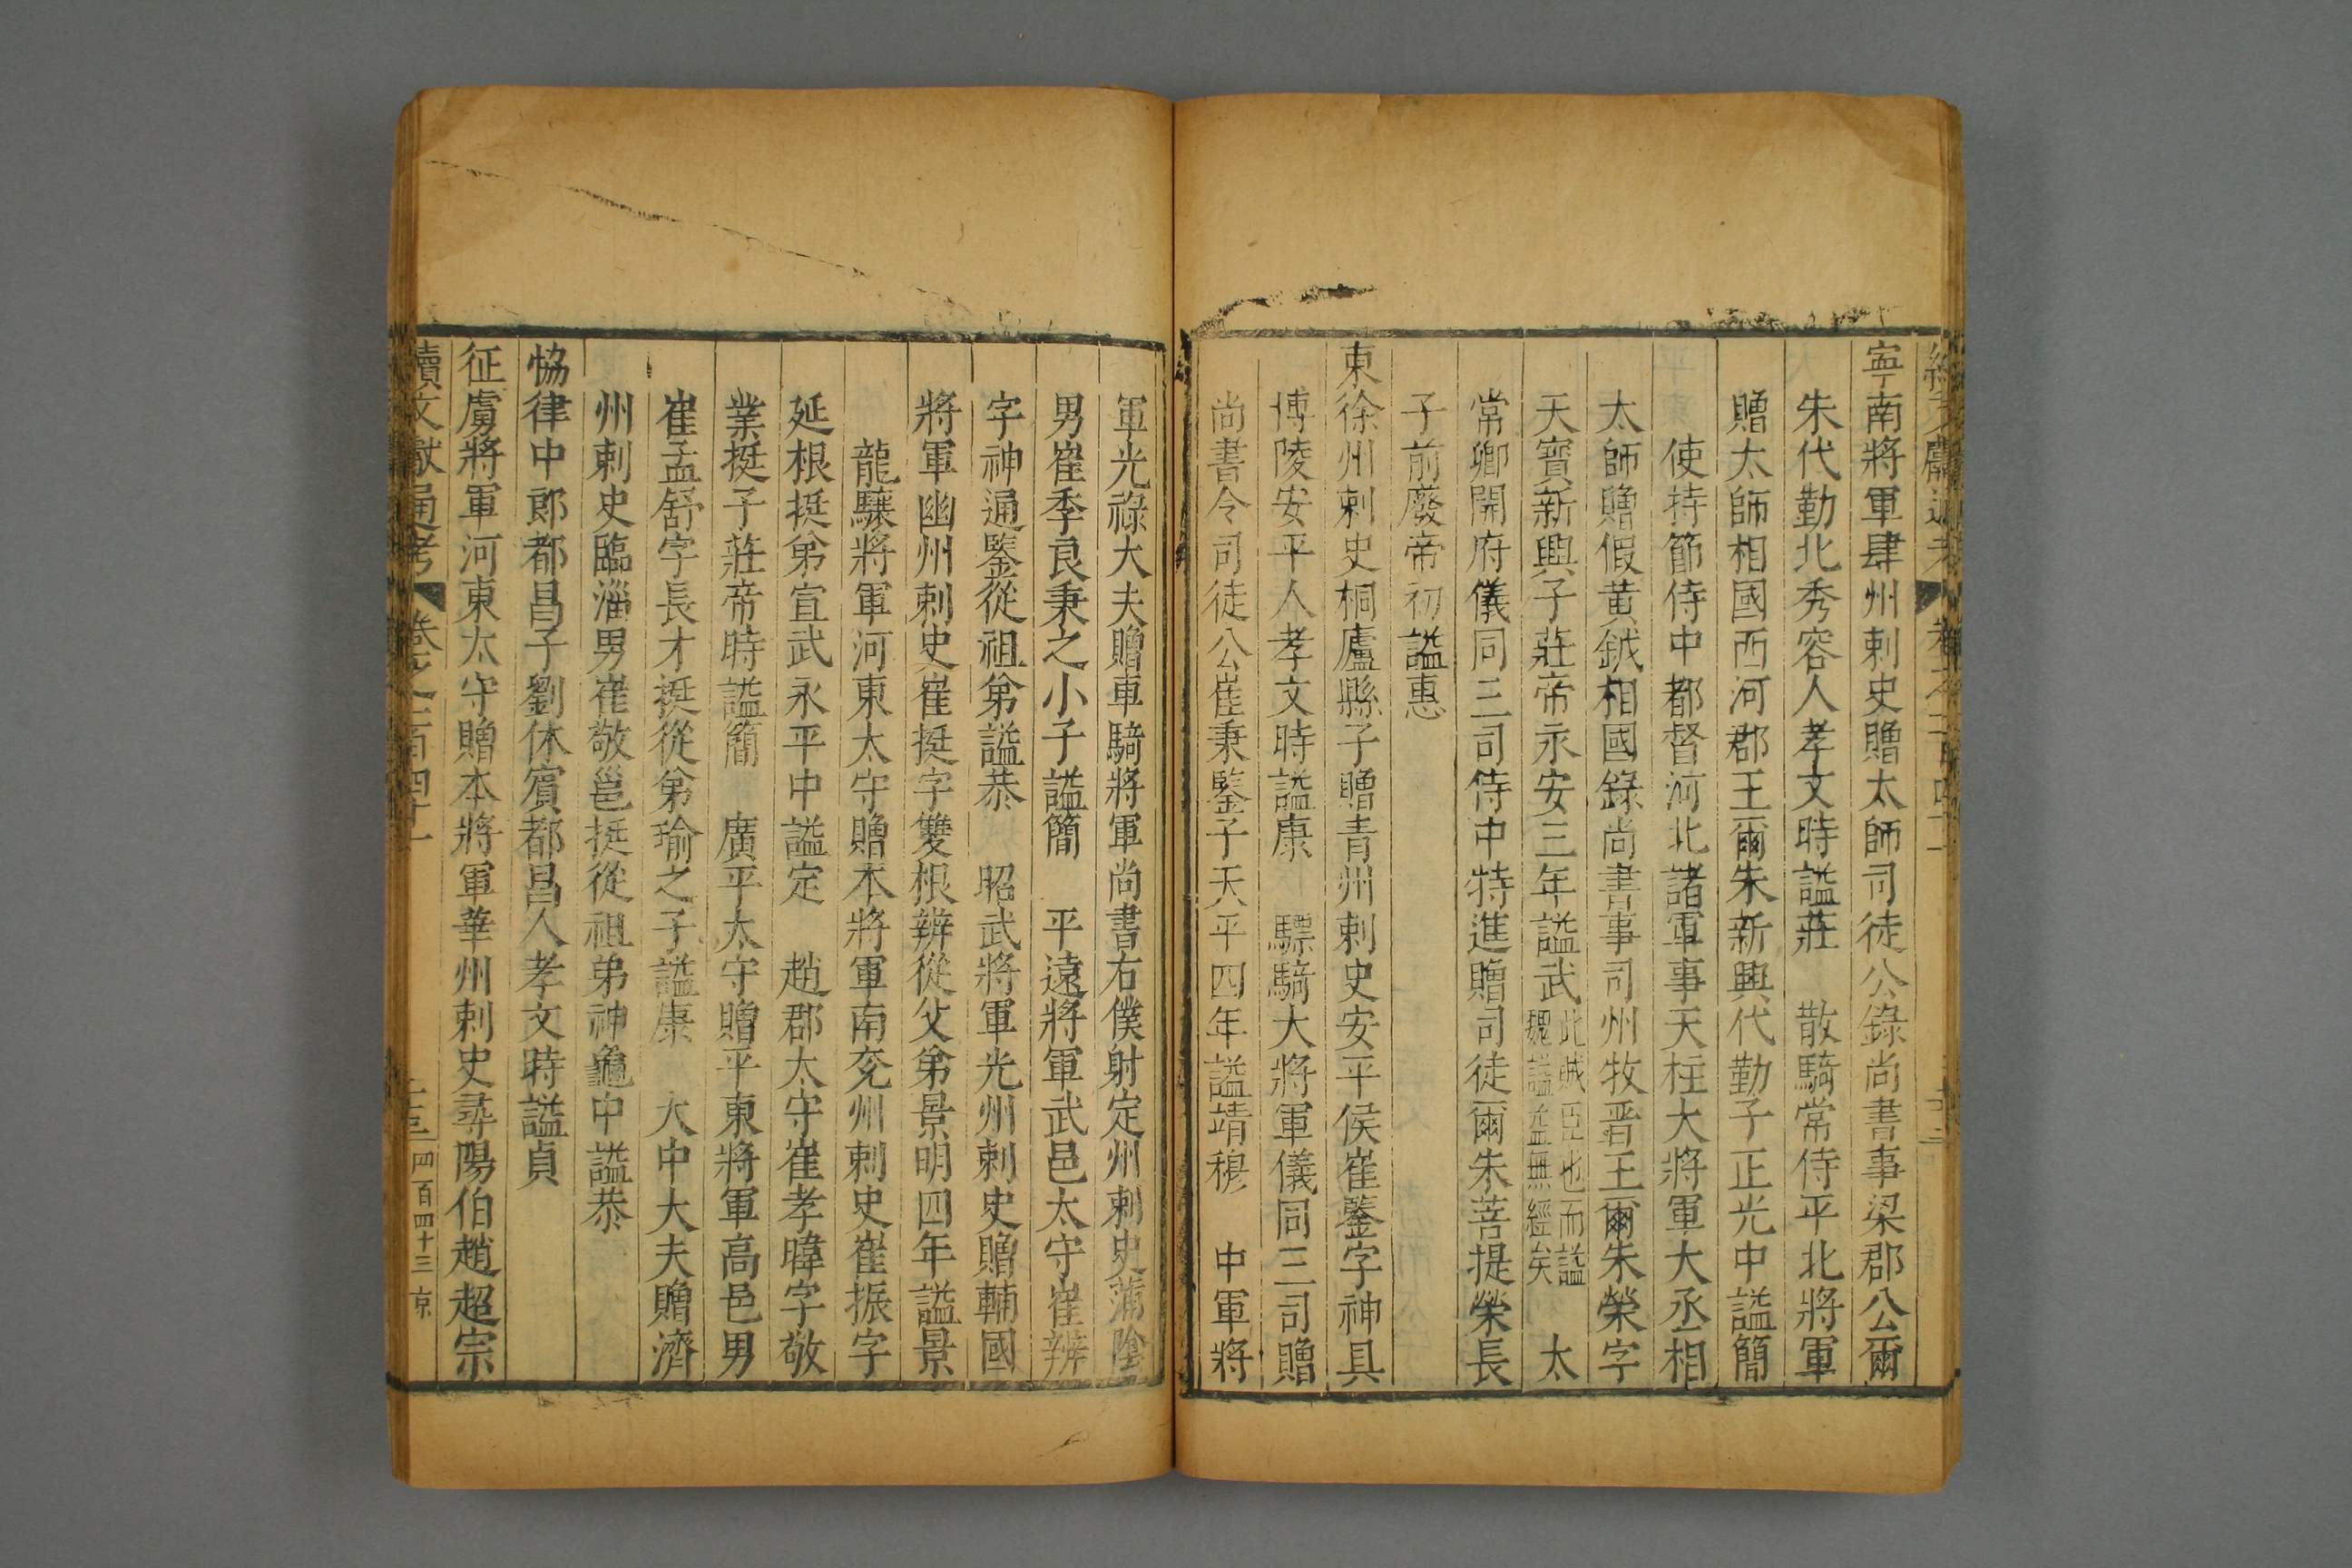 寧南將軍肆州刺史贈太師司徒公錄尚書事梁郡公爾
朱代勤北秀容人孝文時謚莊 散騎常侍平北將軍
贈太師相國西河郡王爾朱新興代勤子正光中謚簡
使持節侍中都督河北諸軍事天柱大將軍大丞相
太師贈假黃鉞相國錄尚書事司州牧晋王爾朱榮字
天寶新興子莊帝永安三年謚武 此賊臣也而謚 魏謚盖無經矣 太
常卿開府儀同三司侍中特進贈司徒爾朱菩提榮長
子前廢帝初謚惠
東徐州刺史桐廬縣子贈青州刺史安平侯崔鑒字神具
博陵安平人孝文時謚康 驃騎大將軍儀同三司贈
尚書令司徒公崔秉鑒子天平四年謚靖穆 中軍將
軍光祿大夫贈車騎將軍尚書右僕射定州刺史蒲陰
男崔季良秉之小子謚簡 平遠將軍武邑太守崔辨
字神通鑒從祖弟謚恭 昭武將軍光州刺史贈輔國
將軍幽州刺史崔挺字雙根辨從父弟景明四年謚景
龍驤將軍河東太守贈本將軍南兖州刺史崔振字
延根挺弟宣武永平中謚定 趙郡太守崔孝暐字敬
業挺子莊帝時謚簡 廣平太守贈平東將軍高邑男
崔孟舒字長才挺從弟瑜之子謚康 大中大夫贈濟
州刺史臨淄男崔敬邕挺從祖弟神龜中謚恭
恊律中郎都昌子劉休賓都昌人孝文時謚貞
征虜將軍河東太守贈本將軍華州刺史尋陽伯趙超宗
續文獻通考 卷之二百四十一 四百四十三 京